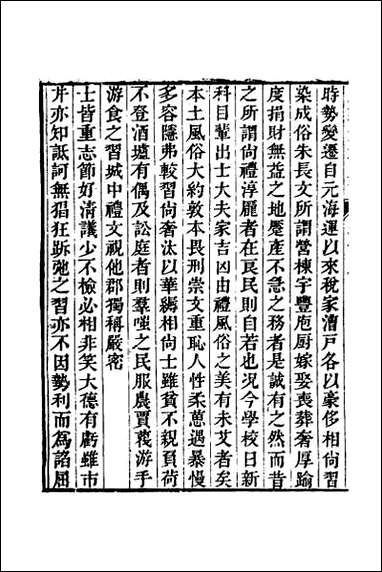 時勢變遷自元海運以來稅家漕戸各以豪侈相尙習
染成俗朱長文所謂營棟宇豐庖厨嫁娶喪葬奢厚踰
度捐財無益之地蹙產不急之務者是誠有之然而昔
之所謂尙禮淳龎者在良民則自若也況今學校日新
科目輩出士大夫家吉凶由禮風俗之美有未艾者矣
本土風俗大約敦本畏刑崇文重恥人性柔蒽遇暴慢
多容隱弗較習尙奢汰以華縟相尙士雖貧不親負荷
不登酒壚有偶及訟庭者則羣嗤之民服農賈蔑游手
游食之習城中禮文視他郡獨稱嚴密
士皆重志節好淸議少不檢必相非笑大德有虧雖市
井亦知詆訶無猖狂跅弛之習亦不因勢利而爲諂屈